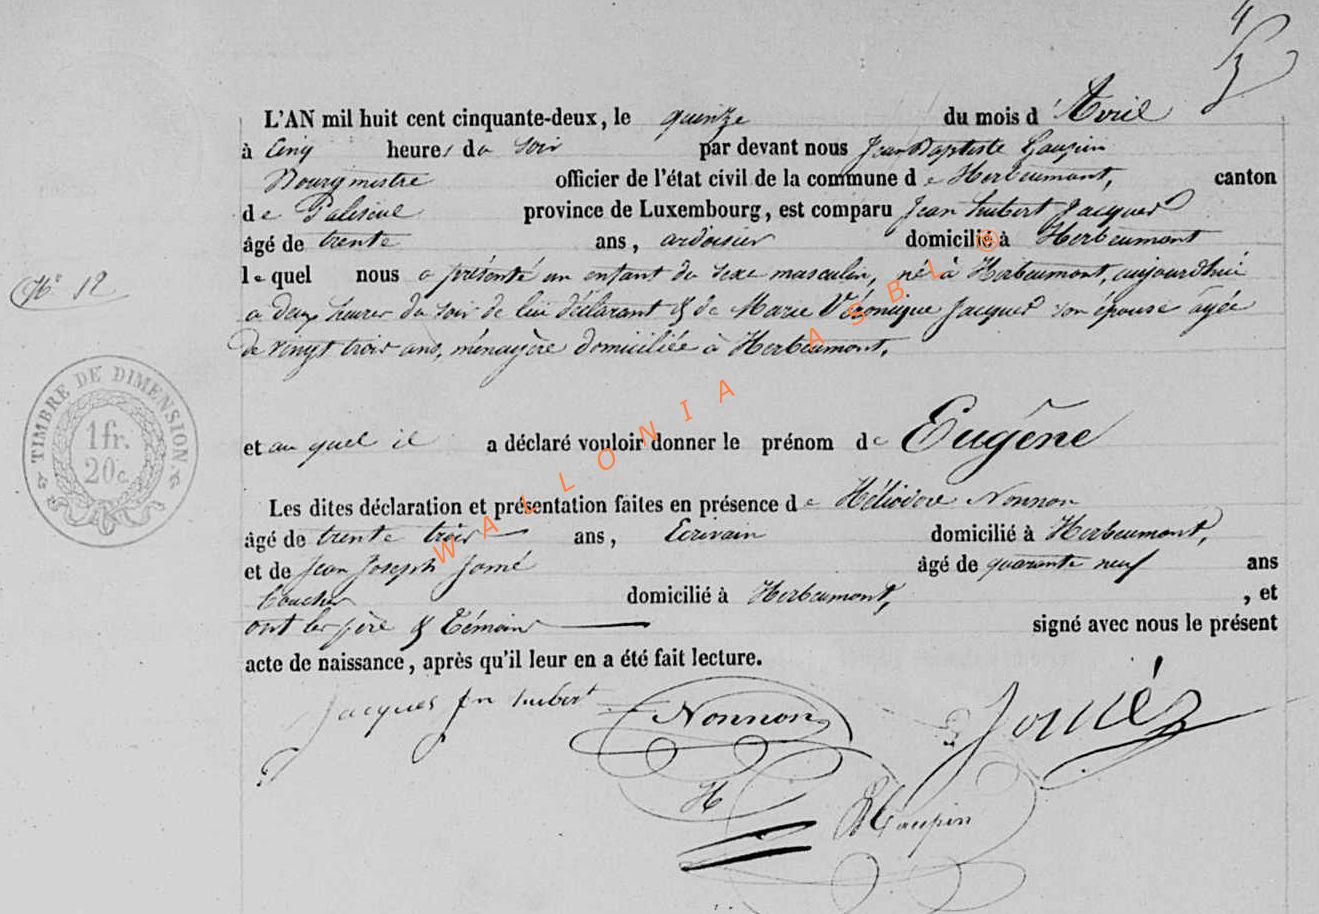 4
L'AN mil huit cent cinquante-deux, le quinze du mois d'Avril
à Cinq heures du soir par devant nous Jean Baptiste Gaupin
Bourgmestre officier de l'état civil de la commune de Herbeumont, canton
de Paliseul province de Luxembourg, est comparu Jean hubert Jacques
âgé de trente ans, ardoisier domicilié à Herbeumont
lequel nous a présenté un enfant du sexe masculin, né à Herbeumont, aujourd'hui
N° 12
a deux heures du soir de lui déclarant & de Marie Véronique Jacques son épouse âgée
de vingt trois ans, ménagère domiciliée à Herbeumont.
et au quel il a déclaré vouloir donner le prénom de Eugène
TIMBRE DE DIMENSION
1fr.
20c.
Les dites déclaration et présentation faites en présence de Héliodore Nonnon
âgé de trente trois ans, Ecrivain domicilié à Herbeumont,
et de Jean Joseph âgé de quarante neuf ans
domicilié à Herbeumont, , et
ont les père & témoins signé avec nous le présent
acte de naissance, après qu'il leur en a été fait lecture.
Jacques Jn hubert Nonnon
H
WALLONIA ASBL ®